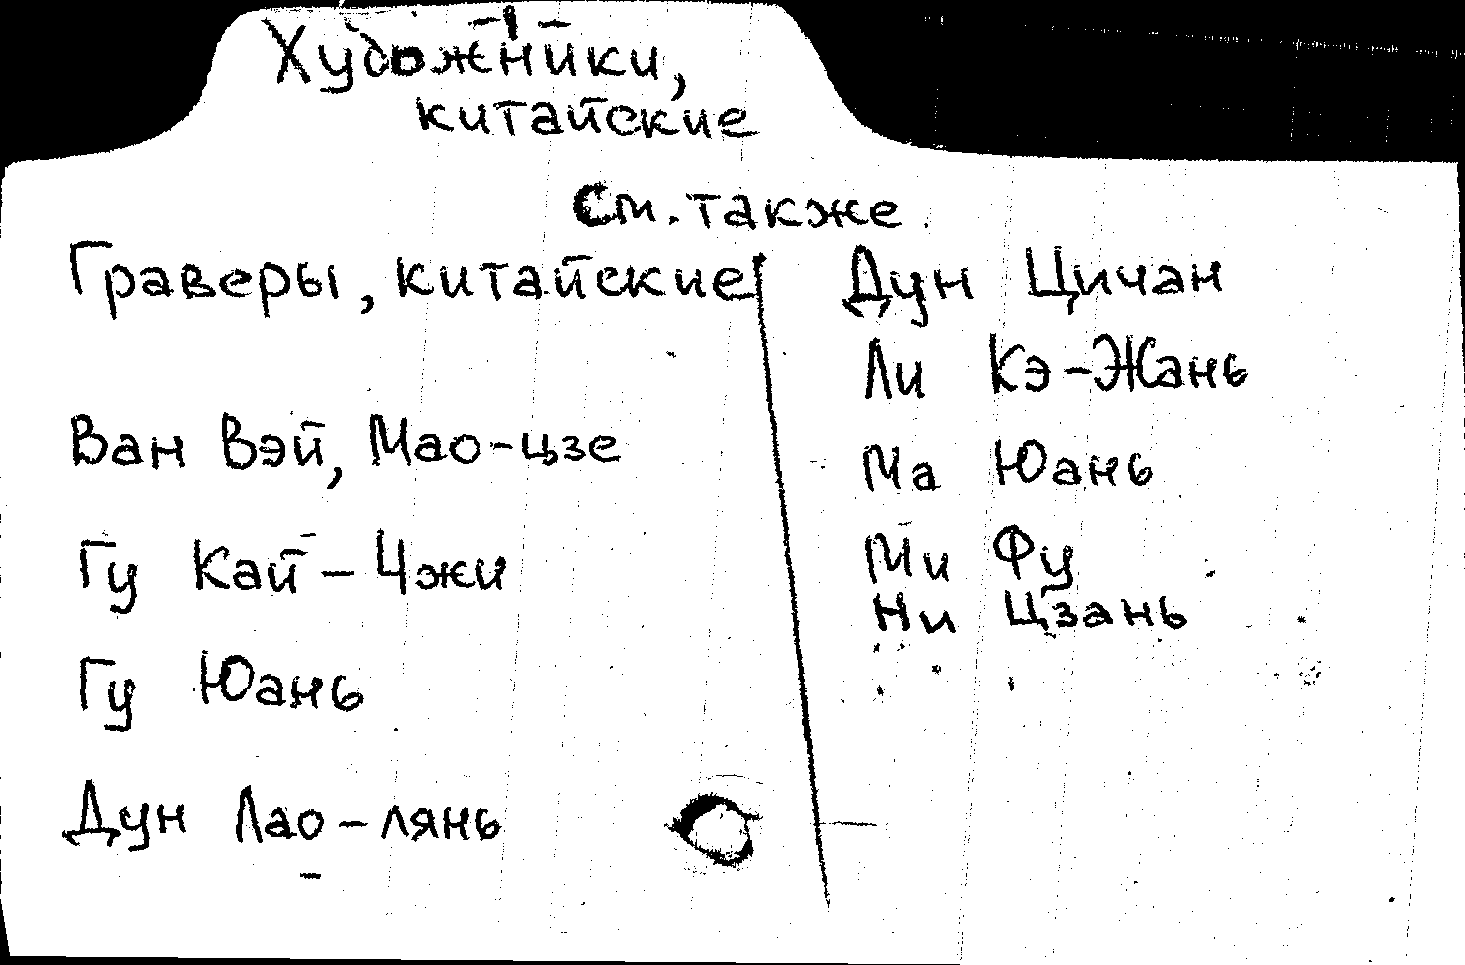 Художники,
китайские
См. также
Граверы, китайские
Ван Вэй, Мао-цзе
Гу Кай-Чжи
Гу Юань
Дун Лао-лянь
Дун Цичан
Ли Кэ-Жань
Ма Юань
Ми Фу
Ни Цзань